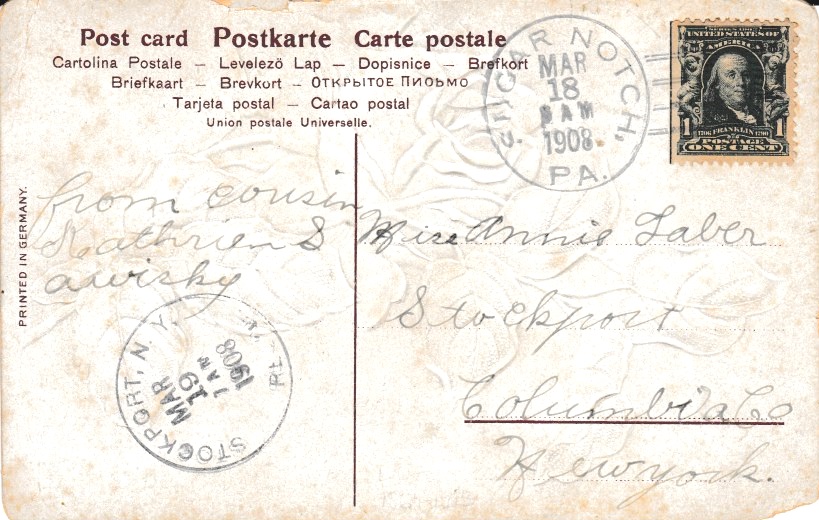 Post card Postkarte Carte postale
Cartolina Postale – Levelezö Lap – Dopisnice – Brefkort
Briefkaart – Brevkort – Открытое Письмо
Tarjeta postal – Cartao postal
Union postale Universelle.
SUGAR NOTCH,
MAR
18
8 AM
1908
PA.
SERIES 1902
UNITED STATES OF
AMERICA
1 1
1706 FRANKLIN 1790
POSTAGE
ONE CENT
PRINTED IN GERMANY.
from cousin
Kathrien S
Miss Annie Taber
Stockport
Columbia Co
New york.
STOCKPORT, N. Y.
MAR
19
1908